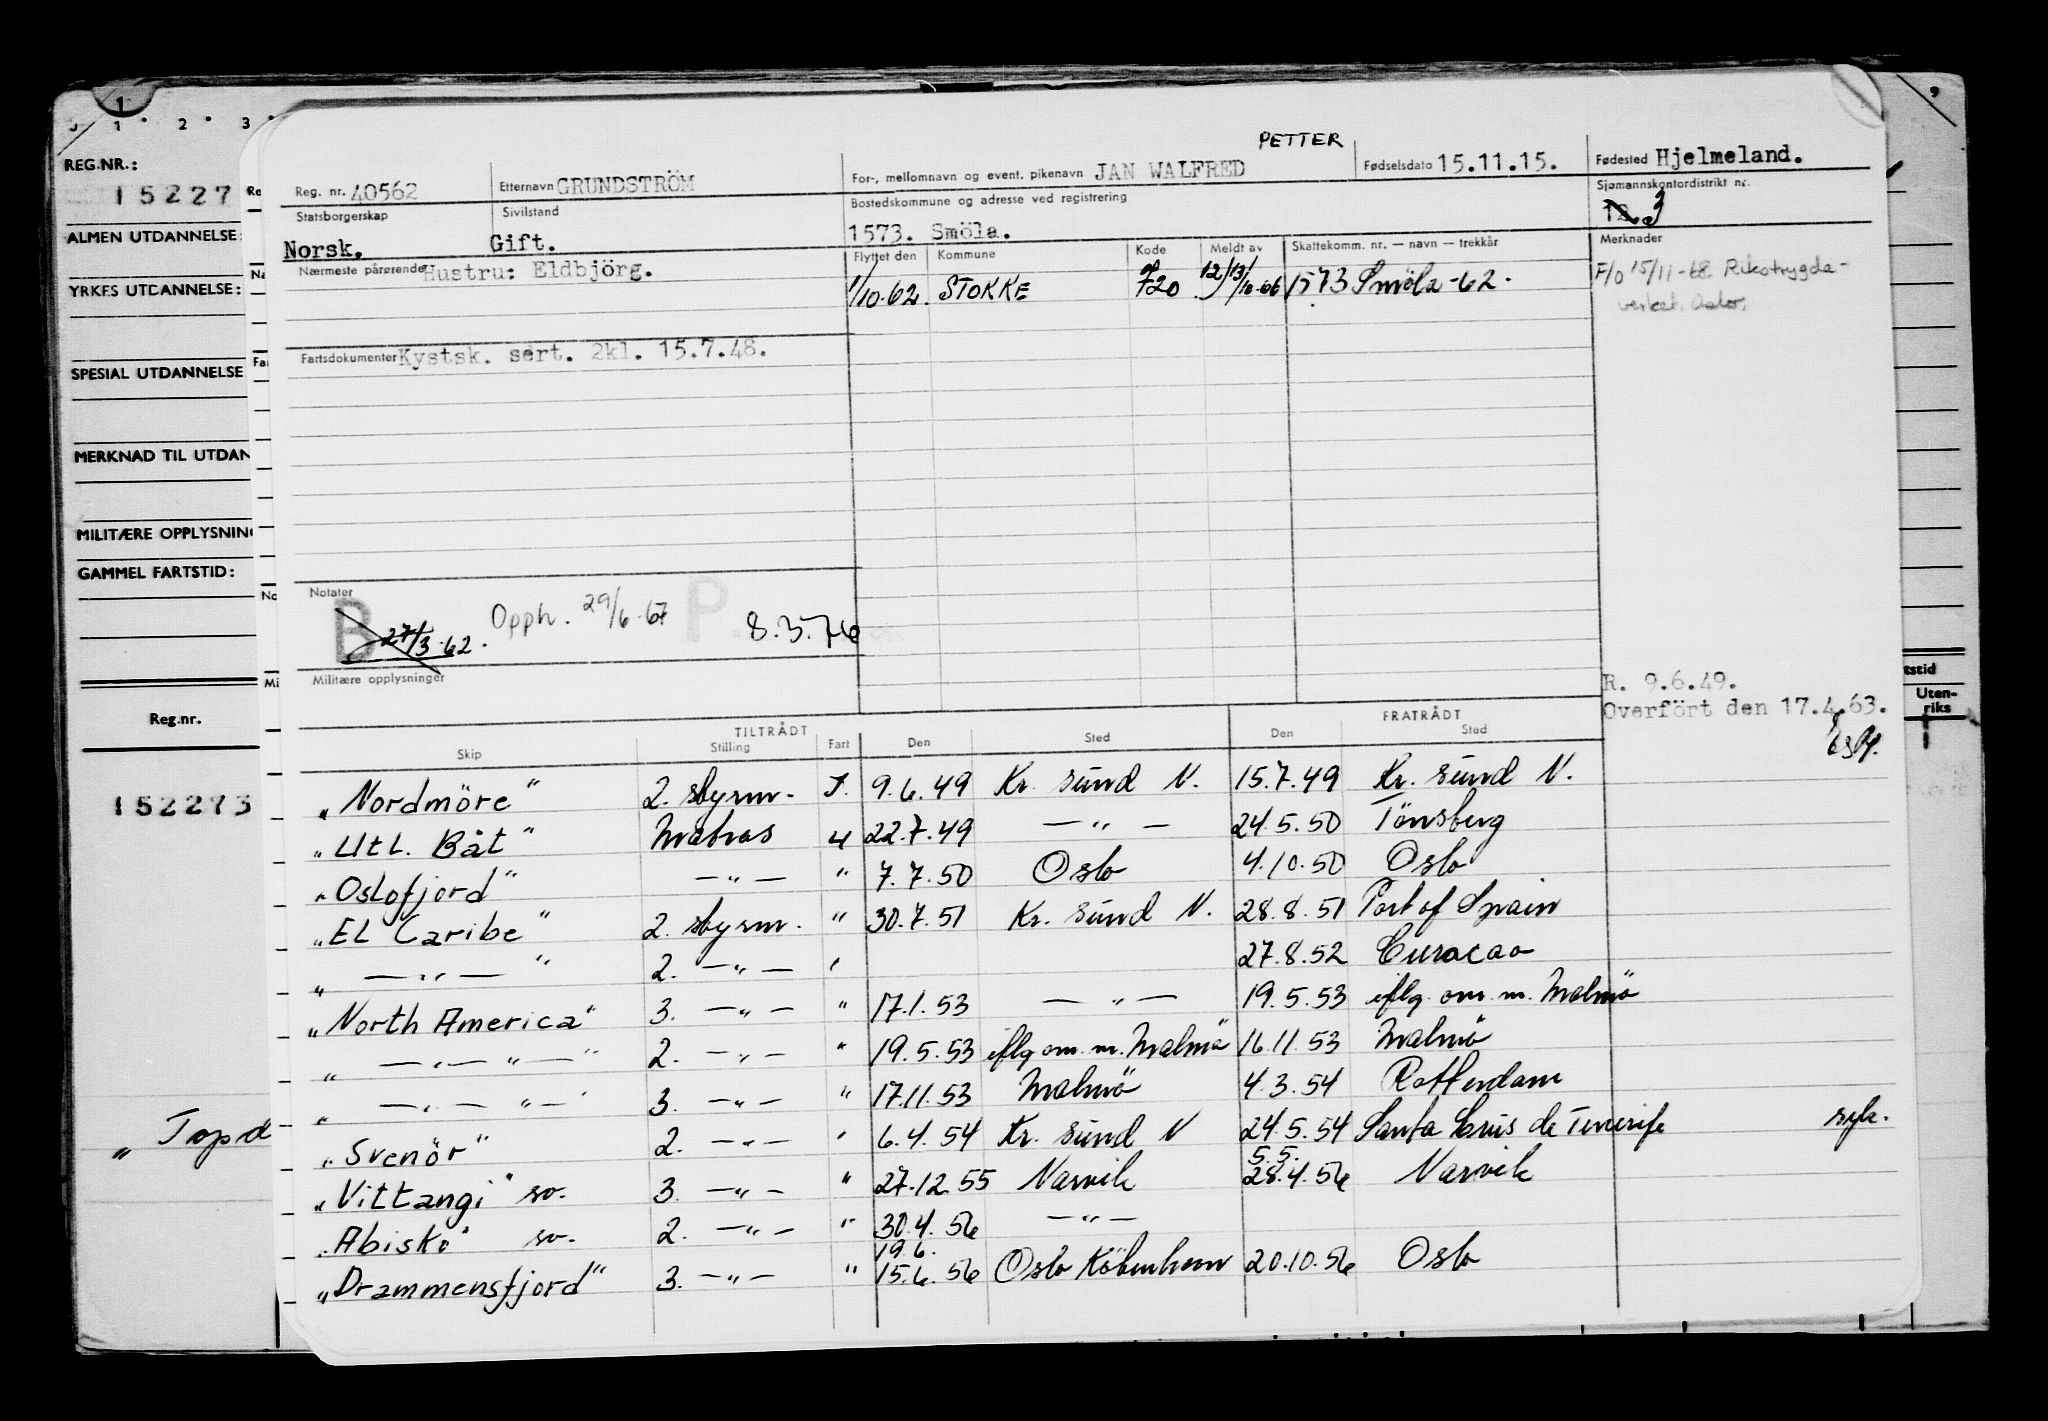 1
1 2 3
REG.NR.:
15227
ALMEN UTDANNELSE:
YRKES UTDANNELSE:
SPESIAL UTDANNELSE
MERKNAD TIL UTDAN
MILITÆRE OPPLYSNING
GAMMEL FARTSTID:
Reg.nr.
152273
„ Topd
PETTER
Reg. nr. 40562 Etternavn GRUNDSTRÖM For-, mellomnavn og event. pikenavn JAN WALFRED Fødselsdato 15.11.15. Fødested Hjelmeland.
Statsborgerskap Sivilstand Bostedskommune og adresse ved registrering Sjømannskontordistrikt nr.
Norsk. Gift. 1573. Smöla. 12. 3
Nærmeste pårørende Hustru: Eldbjörg. Flyttet den Kommune Kode Meldt av Skattekomm. nr. — navn — trekkår Merknader
1/10-62. STOKKE 720 1573 Smöla -62- F/o 15/11-68. Rikstrygda-
verket, Oslo,
Fartsdokumenter Kystsk. sert. 2kl. 15.7.48.
Notater
B 27/3-62. Opph. 29/6-67 P. 8.3.76
Militære opplysninger
R. 9.6.49.
Overfört den 17.4.63.
TILTRÅDT FRATRÅDT
Skip Stilling Fart Den Sted Den Sted
„Nordmöre" 2. styrm. 9.6.49 Kr. sund N. 15.7.49 Kr. sund N.
„Utl. Båt" Matros 22.7.49 —„— 24.5.50 Tönsberg
„Oslofjord" —„— " 7.7.50 Oslo 4.10.50 Oslo
„El Caribe" 2. styrm. " 30.7.51 Kr. sund N. 28.8.51 Port of Spain
„ —„— " 2. —„— ' 27.8.52 Curacao
„North America" 3. —„— " 17.1.53 —„— 19.5.53 iflg. om. m. Malmö
„ —„— „—" 2. —„— " 19.5.53 iflg om. m. Malmö 16.11.53 Malmö
„ —„— „—' 3. —„— " 17.11.53 Malmö 4.3.54 Rotterdam
„Svenör" 2. —„— ' 6.4.54 Kr. sund N 24.5.54 Santa Crus de Tenerife syk.
„Vittangi" sv. 3. —„— " 27.12.55 Narvik 5.5. 28.4.56 Narvik
„Abisko" sv. 2. —„— " 30.4.56 —„—
„Drammensfjord" 3. —„— " 19.6. 15.6.56 Oslo Köbenhavn 20.10.56 Oslo
tstid
Uten-
riks